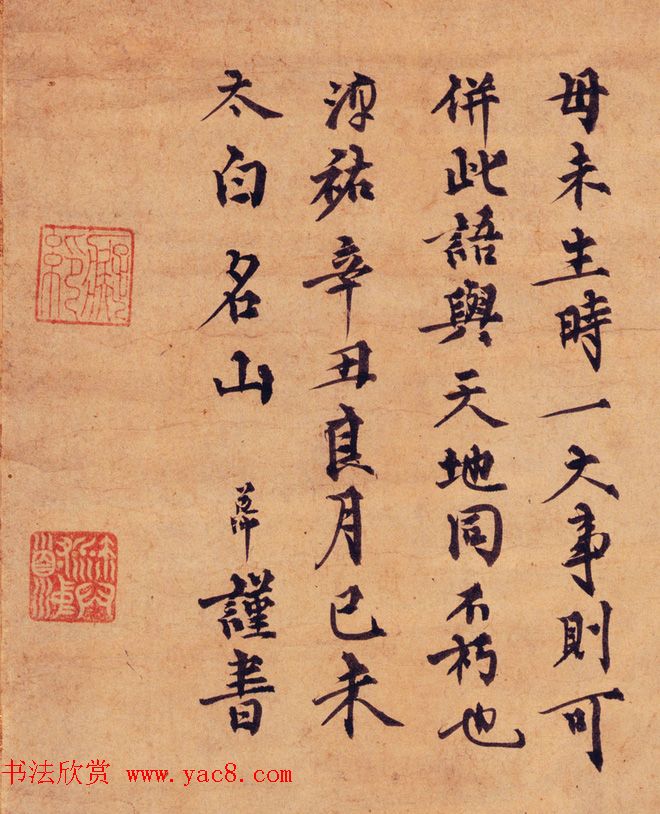 母未生時一大事則可
併此語與天地同不朽也
淳祐辛丑良月己未
太白名山 謹書
书法欣赏 www.yac8.com